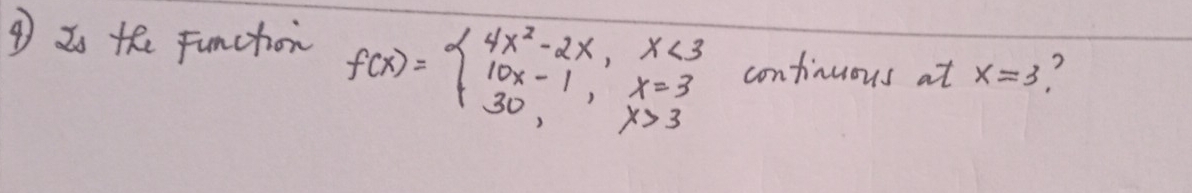 9) Is the Function f(x) = { 4x² - 2x, x < 3
10x - 1, x = 3
30, x > 3 continuous at x = 3?